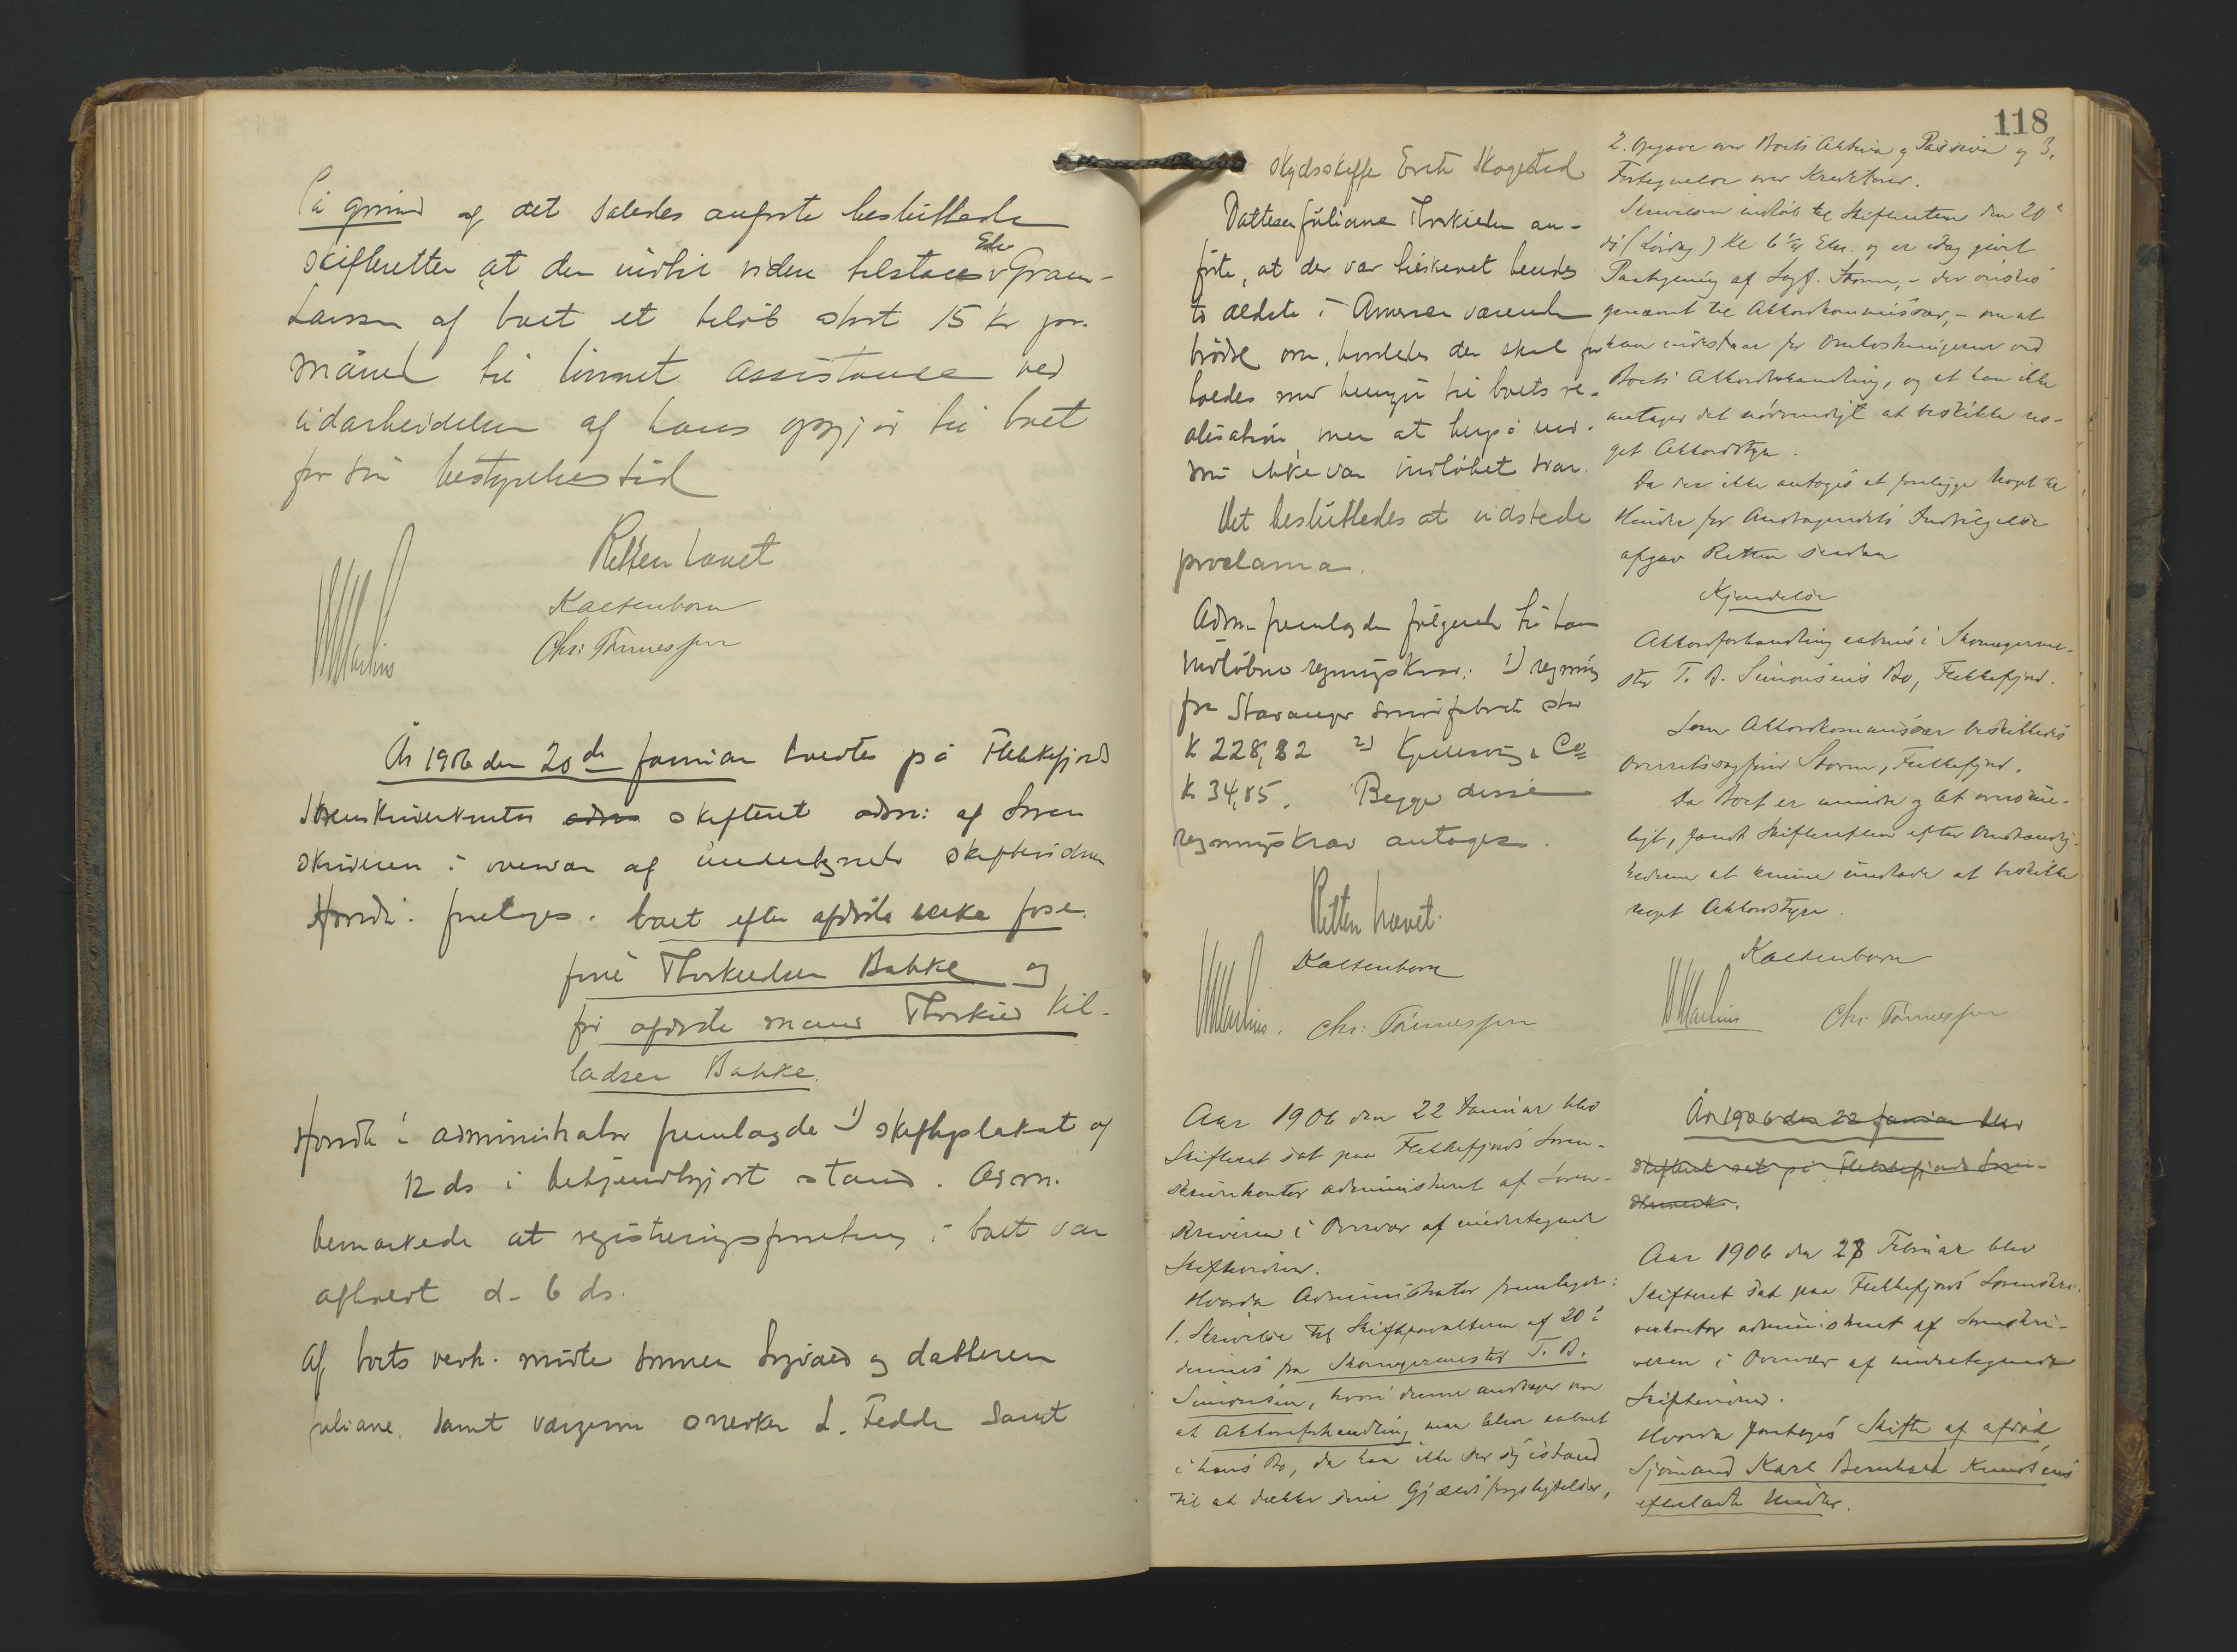 På grund af det således anførte besluttede
skifteretten, at der indtil videre tilstaaes Edv. Gram-
Larssen af boet et beløb stort 15 kr pr.
måned til lønnet assistance ved
udarbeidelsen af hans opgjør til boet
for sin bestyrelsestid
Retten hævet
Kaltenborn
Chr: Tønnessen
År 1906 den 20de januar holdtes på Flekkefjord
Sorenskriverkontor adm skifteret adm: af Soren
skriveren i overvær af undertegnede skiftevidner
Hvorda: foretoges: boet efter afdøde enke Jose-
fine Thorkildsen Bakke og
før afdøde mand Thorkild Kil-
ladsen Bakke.
Hvorda: administrator fremlagde 1) skifteplakat af
12 ds i bekjendtgjort stand. Adm.
bemærkede at registreringsforretning i boet var
afholdt d. 6 ds.
Af boets vedk. mødte sønnen Sigvald og datteren
Juliane samt værgerne L. Fedde samt
118
Skydsskaffer Skogestad
Datteren Juliane Thorkildsen an-
førte, at der var tilskrevet hendes
to ældste i Amerika værende
brødre om, hvorledes der skal for
holdes med hensyn til boets re-
alisation, men at herpå end-
nu ikke var indløbet svar.
Det besluttedes at udstede
proclama.
Adm. fremlagde følgende til ham
indløbne regningskrav: 1) regning
fra Stavanger fabrik stor
K 228,82 2) & Co
K 34,85. Begge disse
regningskrav antages.
Retten hævet.
Kaltenborn
Chr: Tønnessen
Aar 1906 den 22 Januar blev
Skifteret sat paa Flekkefjords Soren-
skriverkontor administreret af Soren-
skriveren i Overvær af undertegnede
Skiftevidner.
Hvorda Administrator fremlagde:
1. Skrivelse til Skifteforvalteren af 20de
dennes fra Skomagermester T. B.
Simonsen, hvori denne andrager om
at Akkordforhandling maa blive aabnet
i hans Bo, da han ikke ser sig istand
til at dække sine Gjældsforpligtelser,
2. Opgave over Boets Aktiva og Passiva og 3.
Fortegnelse over Kreditorer.
Skrivelsen indløb til Skifteretten den 20de
ds (Lørdag) Kl. 6 1/4 Efm. og er idag givet
Paategning af Sagf. Storm, - der ønskes
opnævnt til Akkordkommissær, - om at
han indestaar for Omkostningerne ved
Boets Akkordbehandling, og at han ikke
antager det nødvendigt at beskikke no-
get Akkordstyre.
Da der ikke antages at foreligge noget til
Hinder for Andragendets Indvilgelse
afgav Retten saadan
Kjendelse
Akkordforhandling aabnes i Skomagerme-
ster T. B. Simonsens Bo, Flekkefjord.
Som Akkordkommissær beskikkedes
Overretssagfører Storm, Flekkefjord.
Da Boet er mindre og let overskue-
ligt, fandt Skifteretten efter Omstændig-
hederne at kunne undlade at beskikke
noget Akkordstyre.
Kaltenborn
Chr. Tønnessen
År 1906 den 22 januar blev
skifteret sat på Flekkefjords Soren-
Aar 1906 den 28 Februar blev
Skifteret sat paa Flekkefjords Sorenskri-
verkontor administreret af Sorenskri-
veren i Overvær af undertegnede
Skiftevidner.
Hvorda foretoges Skifte af afdød
Sjømand Karl Bernhard Knudsens
efterladte Midler.